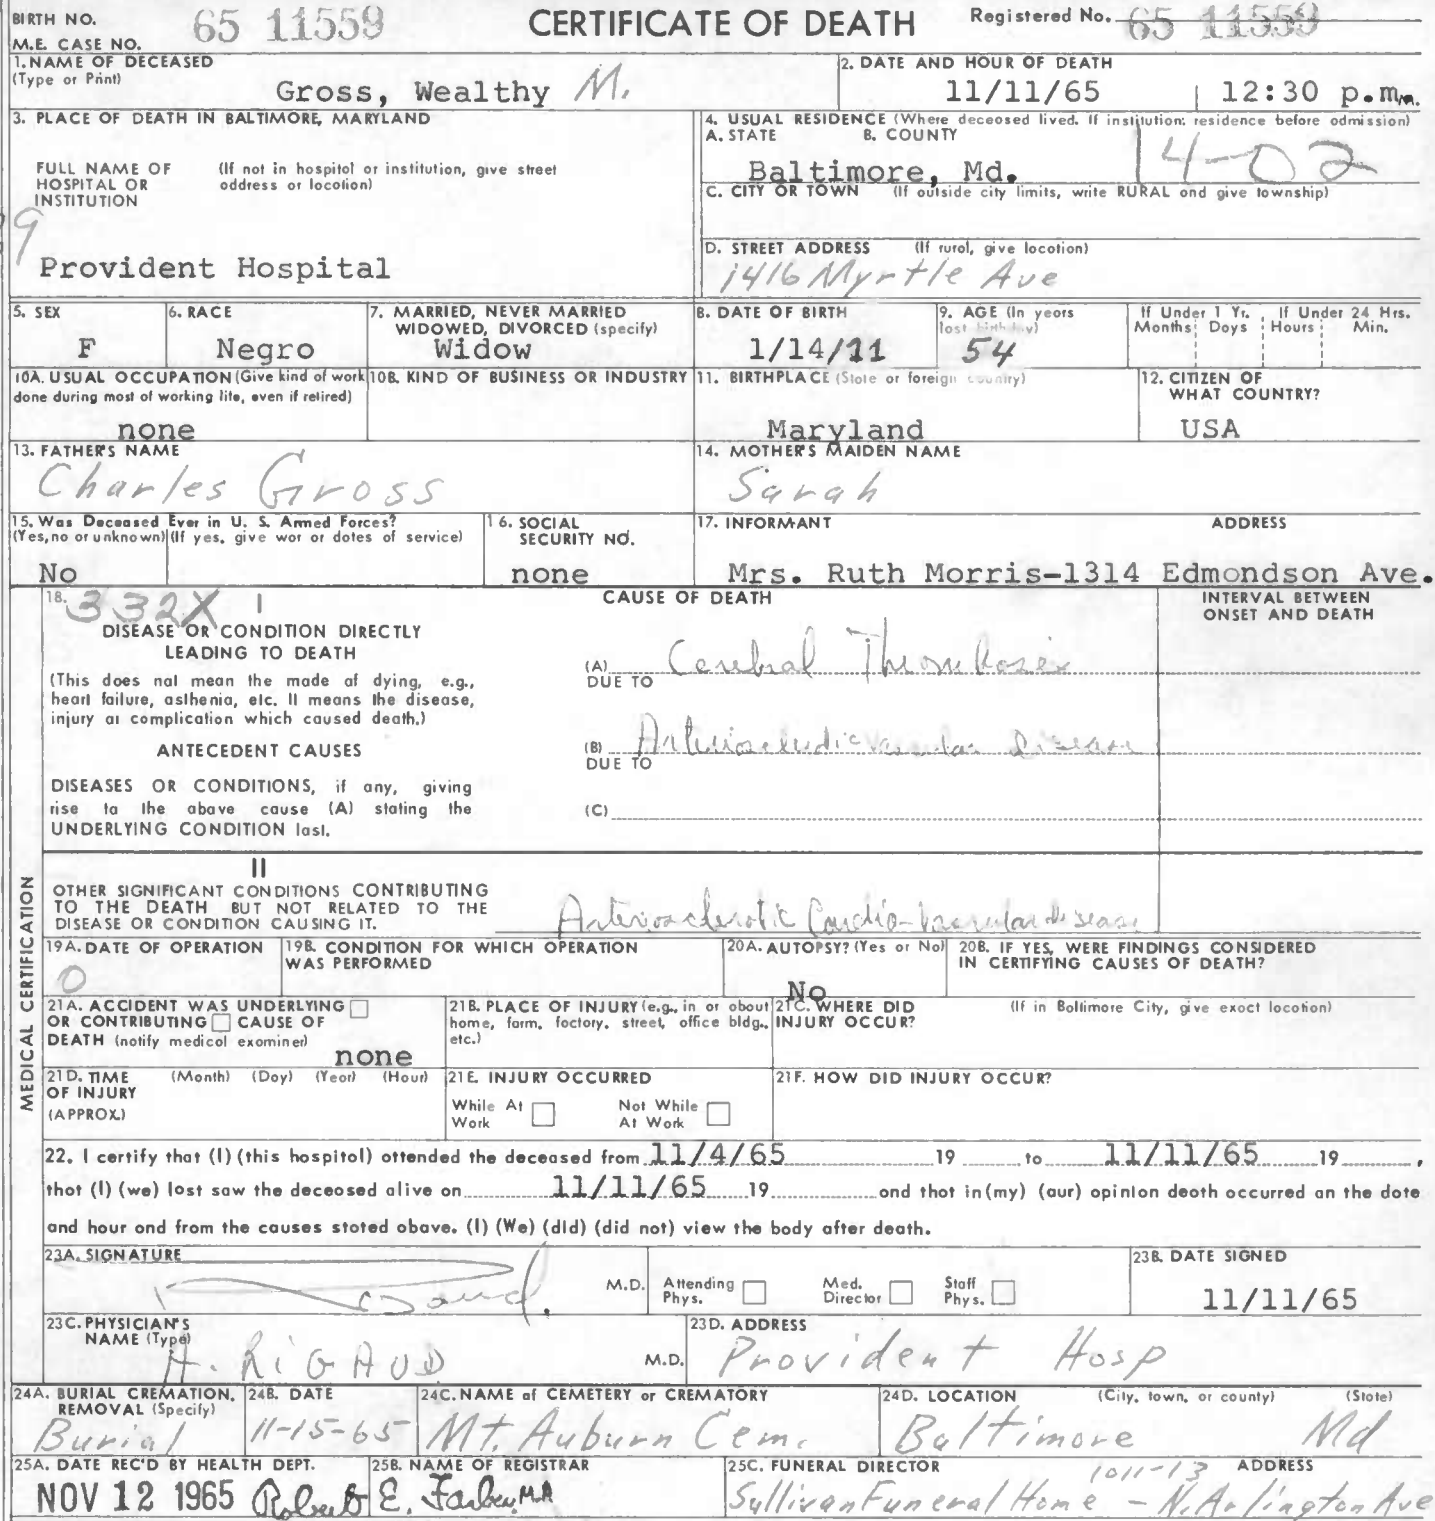 BIRTH NO. 65 11559 CERTIFICATE OF DEATH Registered No. 65 11559
M.E. CASE NO.
1. NAME OF DECEASED
(Type or Print)
Gross, Wealthy M.
2. DATE AND HOUR OF DEATH
11/11/65 12:30 p.m.
3. PLACE OF DEATH IN BALTIMORE, MARYLAND
FULL NAME OF HOSPITAL OR INSTITUTION (If not in hospital or institution, give street address or location)
9
Provident Hospital
4. USUAL RESIDENCE (Where deceased lived. If institution: residence before admission)
A. STATE B. COUNTY
Baltimore, Md. 14-02
C. CITY OR TOWN (If outside city limits, write RURAL and give township)
D. STREET ADDRESS (If rural, give location)
1416 Myrtle Ave
5. SEX
F
6. RACE
Negro
7. MARRIED, NEVER MARRIED WIDOWED, DIVORCED (specify)
Widow
8. DATE OF BIRTH
1/14/11
9. AGE (In years last birthday)
54
If Under 1 Yr. Months Days
If Under 24 Hrs. Hours Min.
10A. USUAL OCCUPATION (Give kind of work done during most of working life, even if retired)
none
10B. KIND OF BUSINESS OR INDUSTRY
11. BIRTHPLACE (State or foreign country)
Maryland
12. CITIZEN OF WHAT COUNTRY?
USA
13. FATHER'S NAME
Charles Gross
14. MOTHER'S MAIDEN NAME
Sarah
15. Was Deceased Ever in U. S. Armed Forces?
(Yes, no or unknown) (If yes, give war or dates of service)
No
16. SOCIAL SECURITY NO.
none
17. INFORMANT ADDRESS
Mrs. Ruth Morris-1314 Edmondson Ave.
MEDICAL CERTIFICATION
18. 332X I
DISEASE OR CONDITION DIRECTLY
LEADING TO DEATH
(This does not mean the mode of dying, e.g.,
heart failure, asthenia, etc. It means the disease,
injury or complication which caused death.)
ANTECEDENT CAUSES
DISEASES OR CONDITIONS, if any, giving
rise to the above cause (A) stating the
UNDERLYING CONDITION last.
CAUSE OF DEATH
INTERVAL BETWEEN ONSET AND DEATH
(A) Cerebral Thrombosis
DUE TO
(B) Arteriosclerotic vascular Disease
DUE TO
(C)
II
OTHER SIGNIFICANT CONDITIONS CONTRIBUTING
TO THE DEATH BUT NOT RELATED TO THE
DISEASE OR CONDITION CAUSING IT.
Arteriosclerotic Cardio-vascular disease
19A. DATE OF OPERATION
0
19B. CONDITION FOR WHICH OPERATION WAS PERFORMED
20A. AUTOPSY? (Yes or No)
No
20B. IF YES, WERE FINDINGS CONSIDERED IN CERTIFYING CAUSES OF DEATH?
21A. ACCIDENT WAS UNDERLYING
OR CONTRIBUTING CAUSE OF
DEATH (notify medical examiner)
none
21B. PLACE OF INJURY (e.g., in or about home, farm, factory, street, office bldg., etc.)
21C. WHERE DID INJURY OCCUR? (If in Baltimore City, give exact location)
21D. TIME OF INJURY (APPROX.) (Month) (Day) (Year) (Hour)
21E. INJURY OCCURRED
While At Work Not While At Work
21F. HOW DID INJURY OCCUR?
22. I certify that (I) (this hospital) attended the deceased from 11/4/65 19 to 11/11/65 19 ,
that (I) (we) last saw the deceased alive on 11/11/65 19 and that in (my) (our) opinion death occurred on the date
and hour and from the causes stated above. (I) (We) (did) (did not) view the body after death.
23A. SIGNATURE
M.D. Attending Phys. Med. Director Staff Phys.
23B. DATE SIGNED
11/11/65
23C. PHYSICIAN'S NAME (Type)
A. RIGAUD M.D.
23D. ADDRESS
Provident Hosp
24A. BURIAL CREMATION, REMOVAL (Specify)
Burial
24B. DATE
11-15-65
24C. NAME of CEMETERY or CREMATORY
Mt. Auburn Cem.
24D. LOCATION (City, town, or county) (State)
Baltimore Md
25A. DATE REC'D BY HEALTH DEPT.
NOV 12 1965
25B. NAME OF REGISTRAR
Robert E. Farber, M.D.
25C. FUNERAL DIRECTOR ADDRESS
Sullivan Funeral Home - 1011-13 N. Arlington Ave